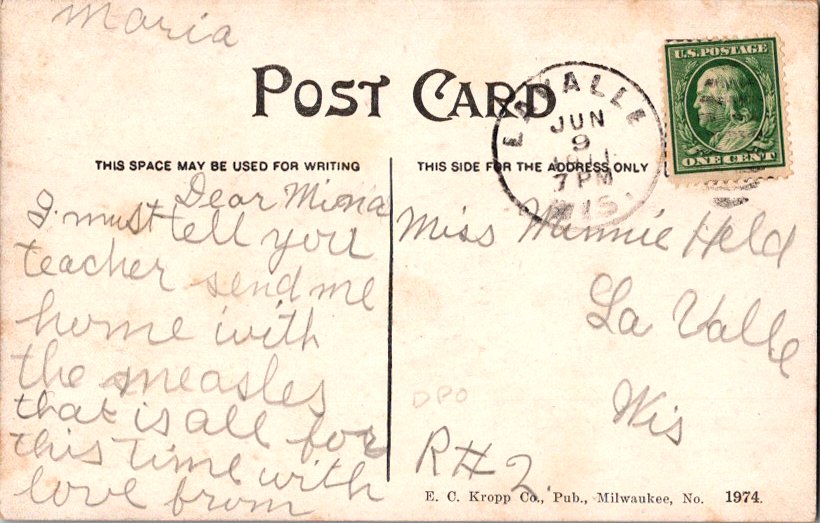 Maria
POST CARD
U.S. POSTAGE
ONE CENT
LAVALLE
JUN
9
1911
7 PM
WIS.
THIS SPACE MAY BE USED FOR WRITING
THIS SIDE FOR THE ADDRESS ONLY
Dear Miona
I must tell you
teacher send me
home with
the measles
that is all for
this time with
love from
Miss Minnie Held
La Valle
Wis
R # 2.
DPO
E. C. Kropp Co., Pub., Milwaukee, No. 1974.